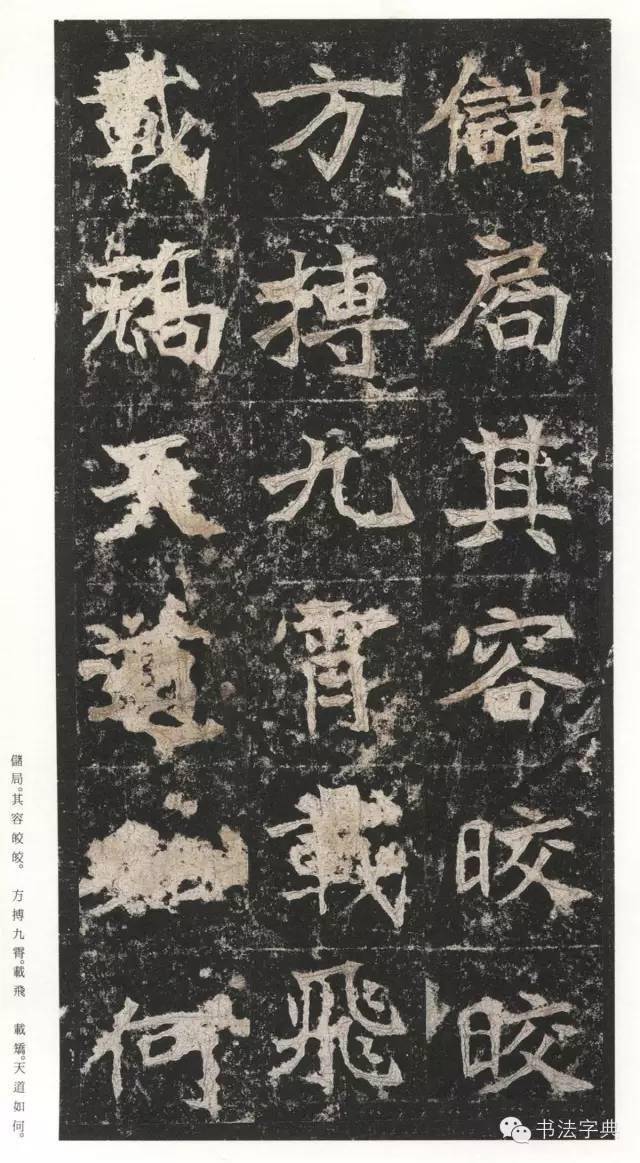 儲局其容皎皎
方搏九霄載飛
載矯天道如何
儲局。其容皎皎。 方搏九霄。載飛 載矯。天道如何。
书法字典